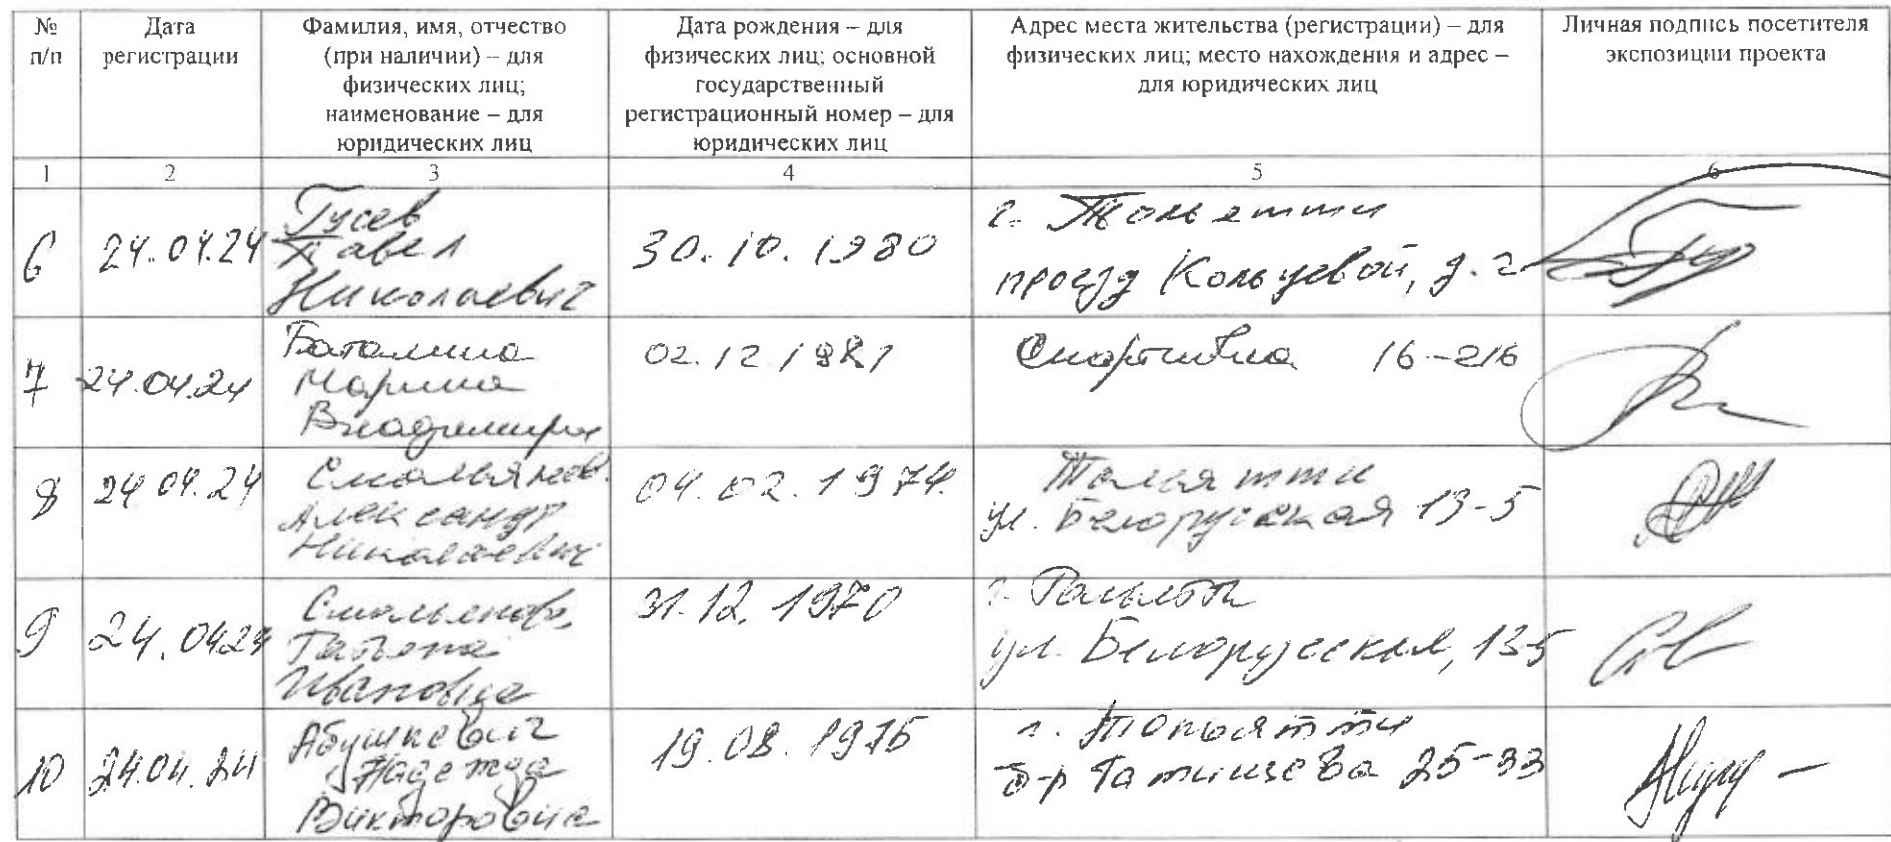 № п/п
Дата регистрации
Фамилия, имя, отчество
(при наличии) – для
физических лиц;
наименование – для
юридических лиц
Дата рождения – для
физических лиц; основной
государственный
регистрационный номер – для
юридических лиц
Адрес места жительства (регистрации) – для
физических лиц; место нахождения и адрес –
для юридических лиц
Личная подпись посетителя
экспозиции проекта
1 2 3 4 5 6
6
24.04.24
Гусев
Павел
Николаевич
30.10.1980
г. Тольятти
проезд Кольцевой, д. 2
7
24.04.24
Баталина
Марина
Владимировна
02.12.1981
Спортивная 16-216
8
24.04.24
Смольянов
Александр
Николаевич
04.02.1974.
Тольятти
ул. Белорусская 13-5
9
24.04.24
Смольянова
Татьяна
Ивановна
31.12.1970
г. Тольятти
ул. Белорусская, 13-5
10
24.04.24
Абушкевич
Надежда
Викторовна
19.08.1975
г. Тольятти
б-р Татищева 25-33